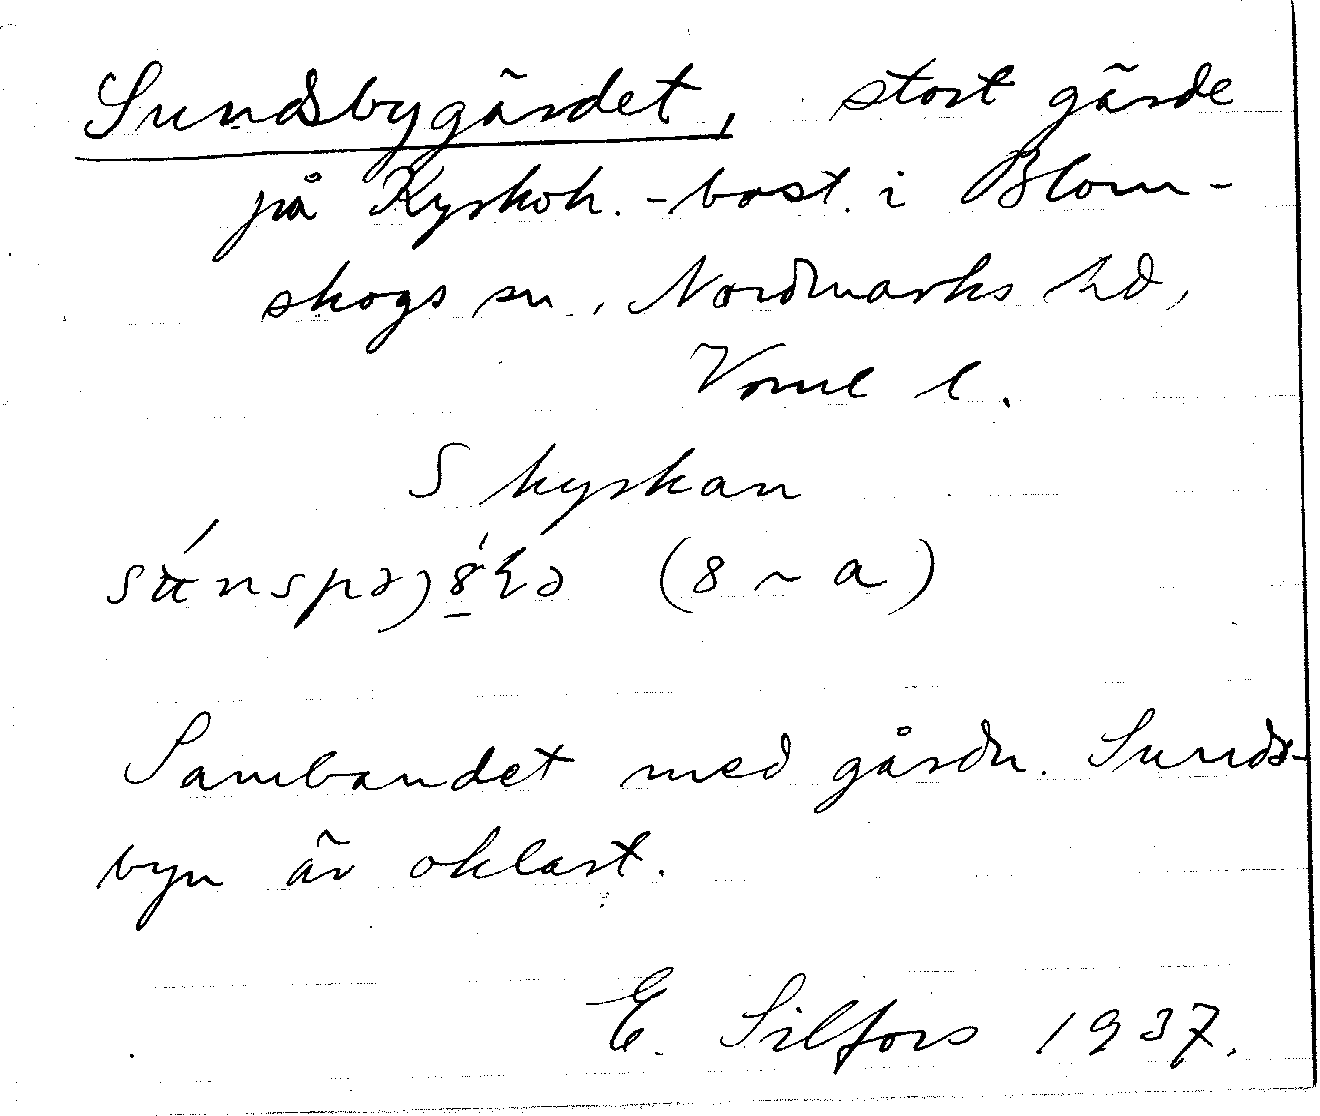 Sundsbygärdet, stort gärde
på Kyrkoh.-bost. i Blom-
skogs sn, Nordmarks hd,
Värml l.
S kyrkan
(8 ~ a)
Sambandet med gårdn. Sunds-
byn är oklart.
E. Silfors 1937.